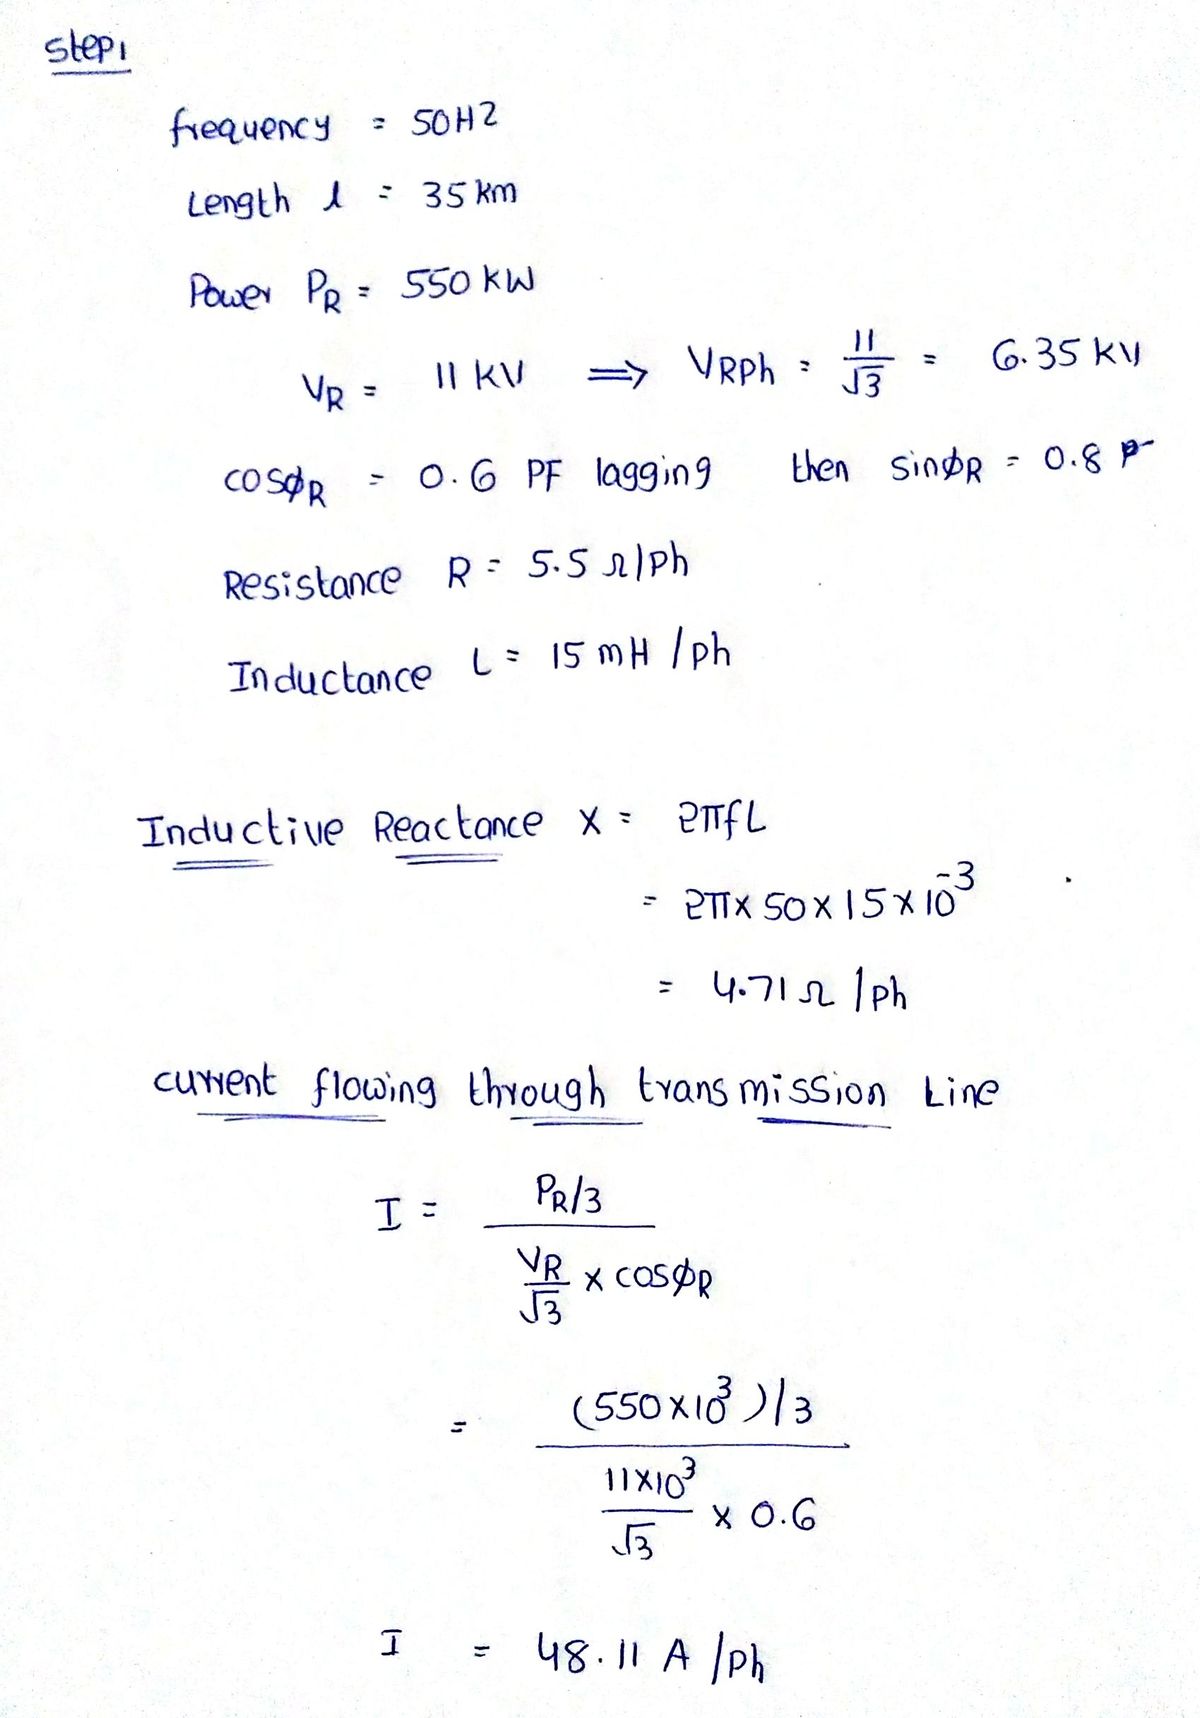 Step1
frequency = 50HZ
Length l = 35 km
Power PR = 550 KW
VR = 11 KV ⟹ VRPh = 11/√3 = 6.35 KV
cosϕR = 0.6 PF lagging then sinϕR = 0.8
Resistance R = 5.5 Ω/Ph
Inductance L = 15 mH /ph
Inductive Reactance X = 2πfL
= 2π× 50 × 15 × 10⁻³
= 4.71 Ω /ph
current flowing through transmission Line
I = PR/3
VR/√3 × cosϕR
= (550×10³)/3
11×10³/√3 × 0.6
I = 48.11 A /Ph